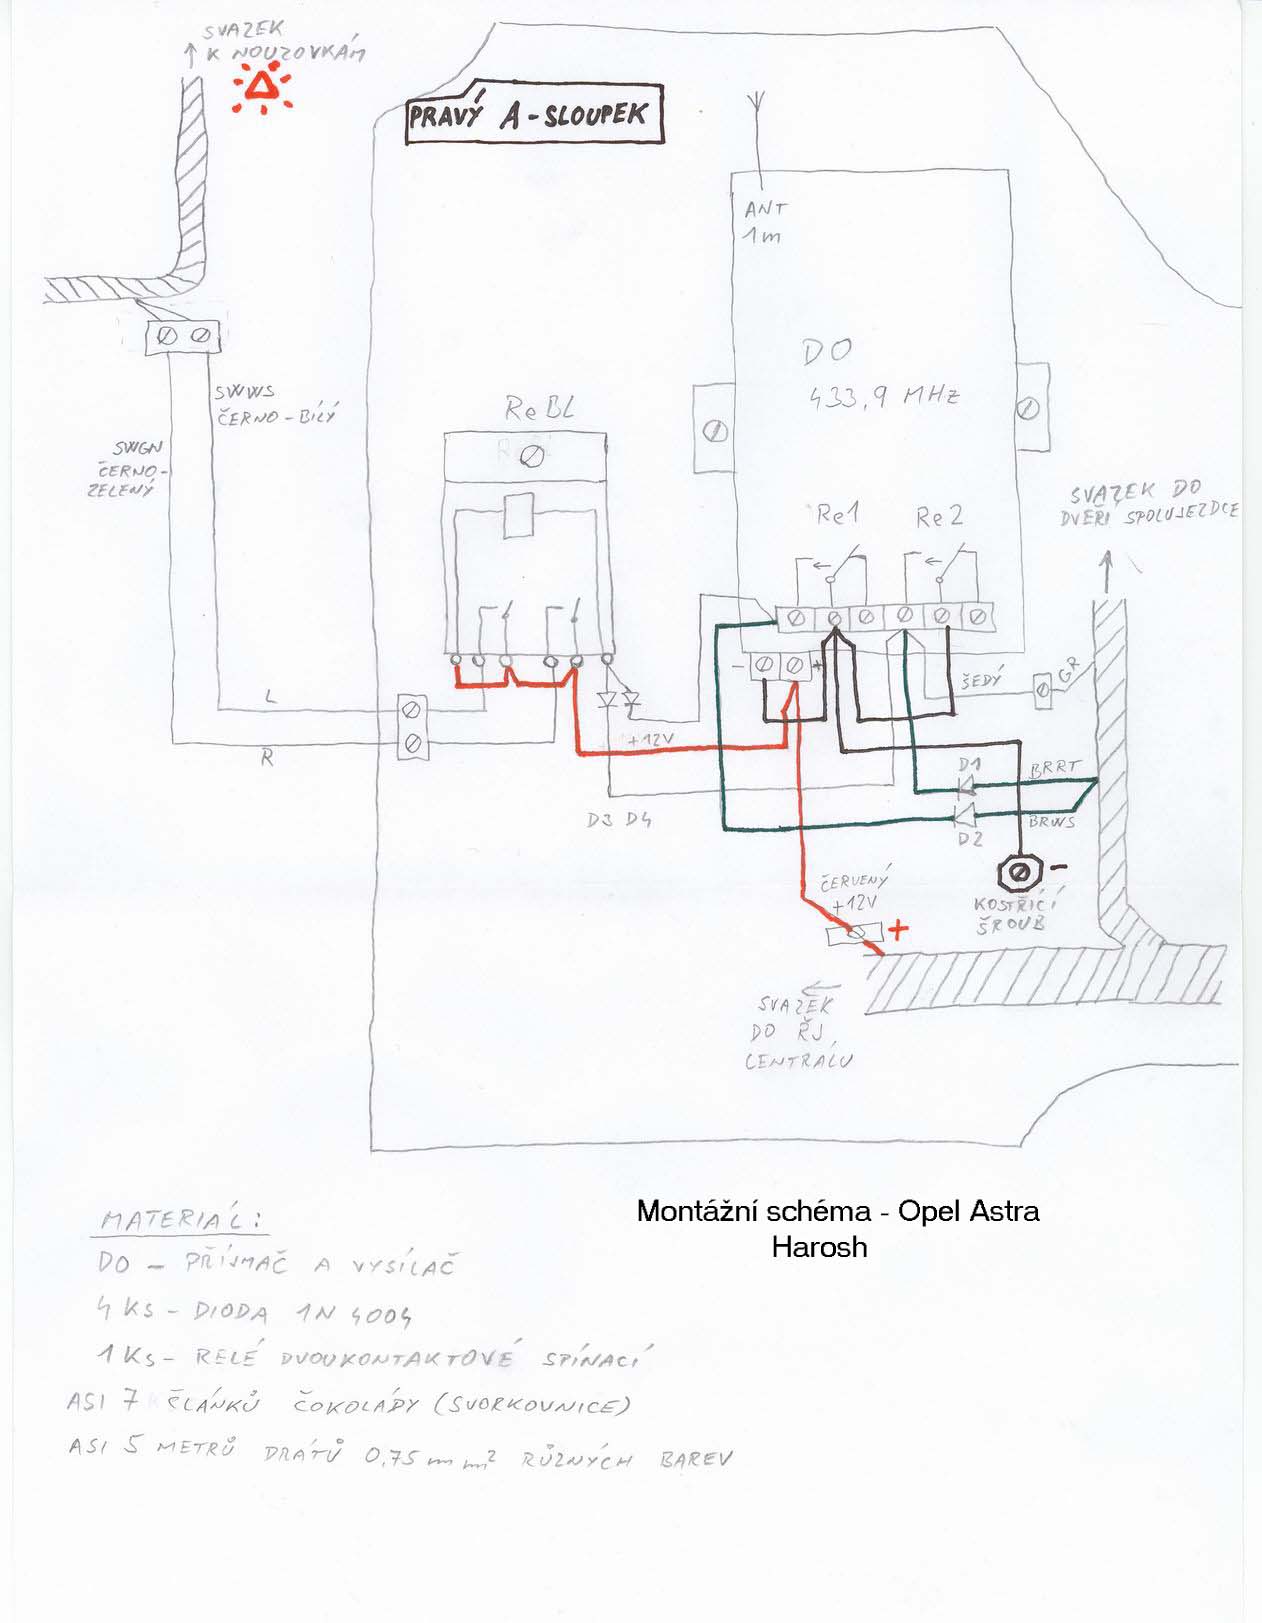 SVAZEK
K NOUZOVKÁM
PRAVÝ A-SLOUPEK
ANT
1m
DO
433,9 MHz
SWWS
ČERNO-BÍLÝ
SWGN
ČERNO-
ZELENÝ
Re BL
Re1
Re2
SVAZEK DO
DVEŘÍ SPOLUJEZDCE
-
+
ŠEDÝ
GR
L
R
+12V
D1
BRRT
D3 D4
D2
BRWS
ČERVENÝ
+12V
+
-
KOSTŘÍCÍ
ŠROUB
SVAZEK
DO ŘJ,
CENTRÁLU
MATERIÁL:
DO - PŘÍJMAČ A VYSÍLAČ
4 KS - DIODA 1N 4004
1 KS - RELÉ DVOUKONTAKTOVÉ SPÍNACÍ
ASI 7 ČLÁNKŮ ČOKOLÁDY (SVORKOVNICE)
ASI 5 METRŮ DRÁTŮ 0,75 mm² RŮZNÝCH BAREV
Montážní schéma - Opel Astra
Harosh